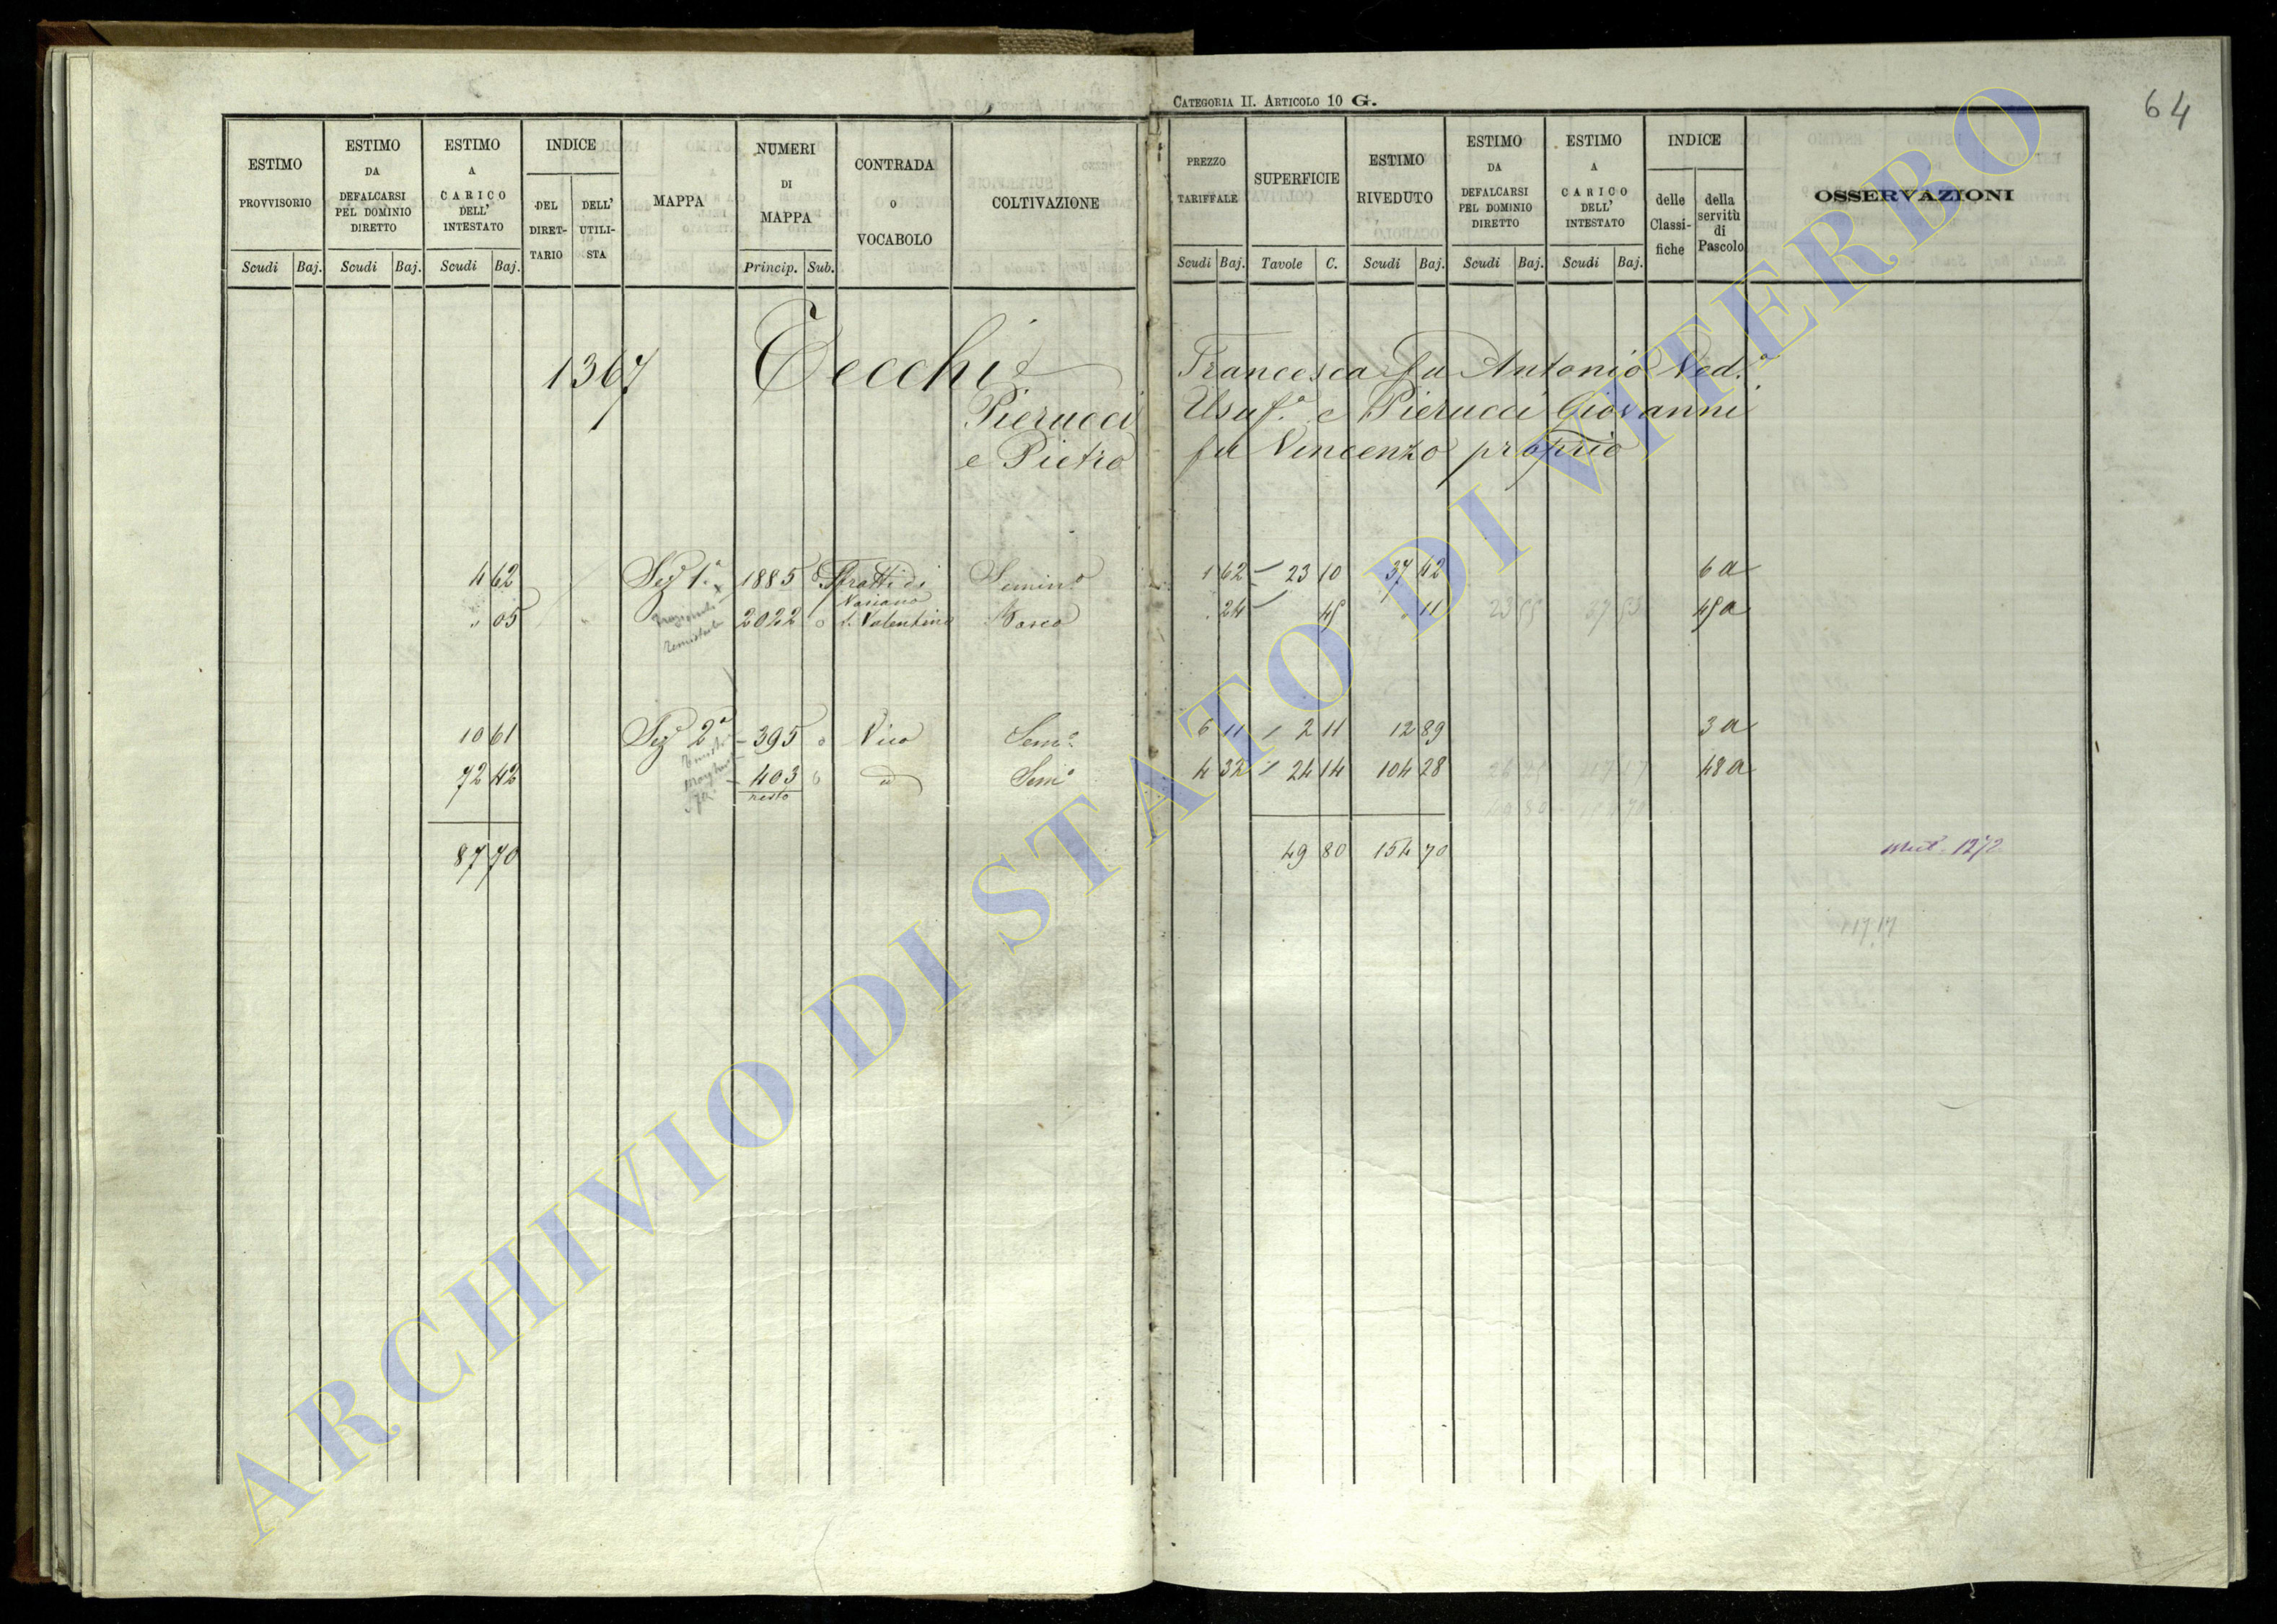 Categoria II. Articolo 10 G.
64
ESTIMO PROVVISORIO
ESTIMO DA DEFALCARSI PEL DOMINIO DIRETTO
ESTIMO A CARICO DELL' INTESTATO
INDICE
DEL DIRETTARIO
DELL' UTILISTA
MAPPA
NUMERI DI MAPPA
CONTRADA O VOCABOLO
COLTIVAZIONE
PREZZO TARIFFALE
SUPERFICIE
ESTIMO RIVEDUTO
ESTIMO DA DEFALCARSI PEL DOMINIO DIRETTO
ESTIMO A CARICO DELL' INTESTATO
INDICE
delle Classifiche
della servitù di Pascolo
OSSERVAZIONI
Scudi Baj. Scudi Baj. Scudi Baj. Princip. Sub. Scudi Baj. Tavole C. Scudi Baj. Scudi Baj. Scudi Baj.
1367 Tecchi Francesca fu Antonio Ved.a
Pierucci Usuf.a e Pierucci Giovanni
e Pietro fu Vincenzo proprio
4 62 Sez 1.a 1885 Sfratti di Semin.o 1 62 23 10 37 42 6 a
05 2022 S. Valentino Bosco 24 45 11 45 a
10 61 Sez 2a 395 Vico Sem.o 6 11 2 11 12 89 3 a
72 42 403 id Sem.o 4 32 24 14 104 28 48 a
resto
87 70 49 80 154 70
Mut. 1272
117 17
ARCHIVIO DI STATO DI VITERBO